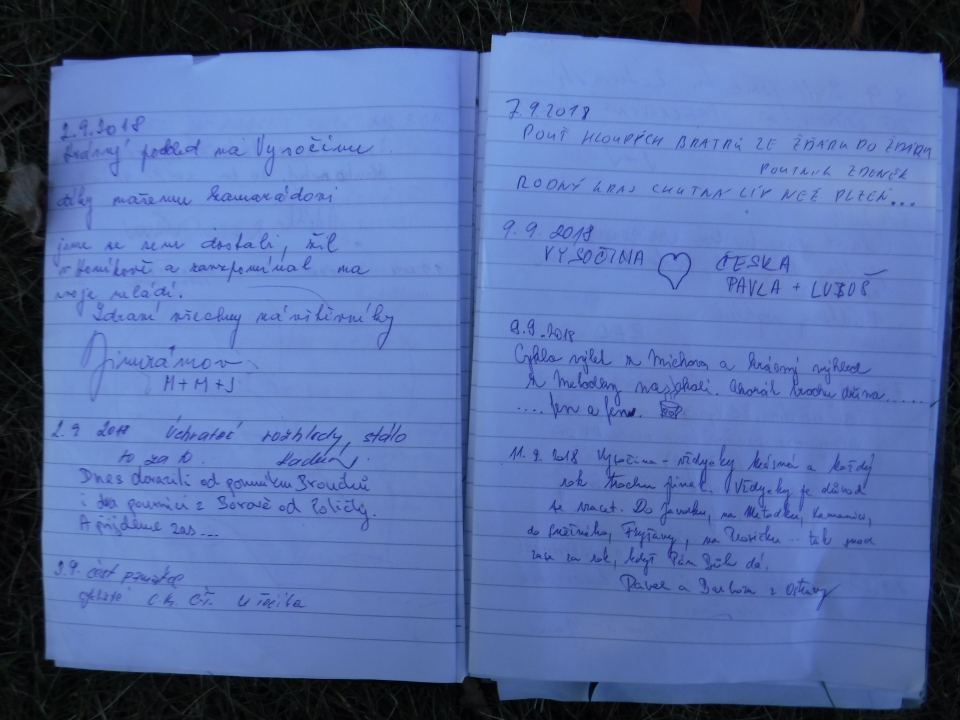 2.9.2018
Krásný pohled na Vysočinu.
díky našemu kamarádovi
jsme se sem dostali, žil
a zavzpomínal na
svoje mládí.
Zdraví všechny návštěvníky
Jimramov
M+M+J
2.9 2018 Úchvatné rozhledy, stálo
to za to.
Dnes dorazili od pomníku Broučků
i dva poutníci z Borové od Poličky.
A přijdeme zas...
3.9. čest památce
7.9.2018
POUŤ HLOUPÝCH BRATRŮ ZE ŽĎÁRU DO ŽĎÁRU
POUTNÍK ZDENĚK
RODNÝ KRAJ CHUTNÁ LÍP NEŽ PLZEŇ...
9.9 2018
VYSOČINA ČESKA
PAVLA + LUBOŠ
9.9.2018
Cyklo výlet z Míchova a krásný výhled
z trochu dřina......
.... Jen a jen.
11.9.2018 Vysočina - vždycky krásná a každý
rok trochu jinak. Vždycky je důvod
se vracet. Do Javorku, na Metodku, Kamenice,
do Sněžného, Fryšavy, na ... tak snad
zase za rok, když Pán Bůh dá.
Pavel a Barbora z Ostravy